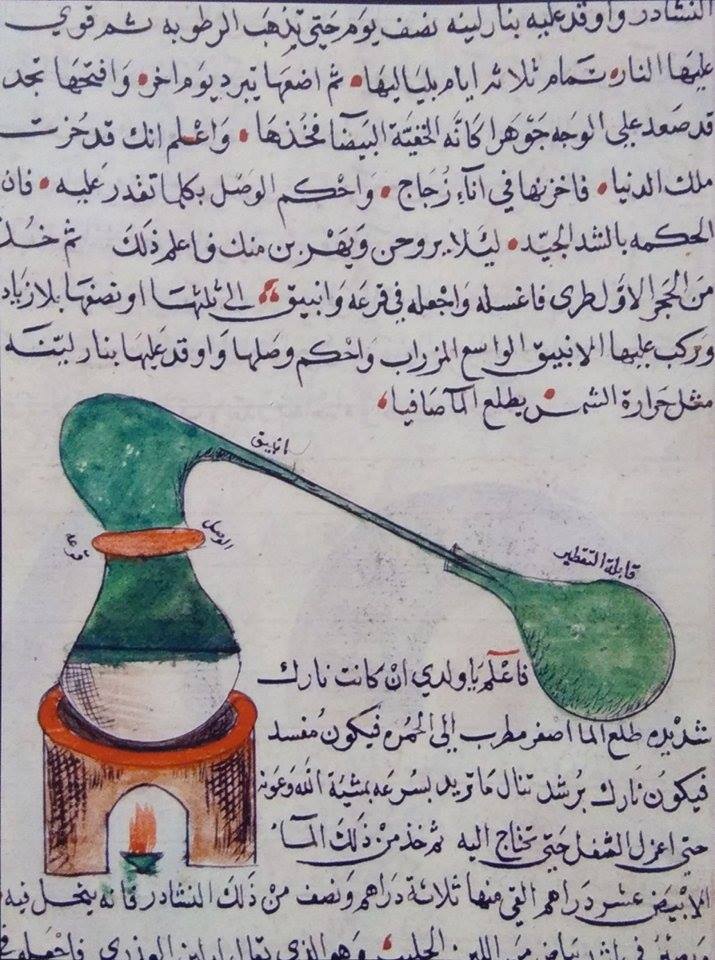 النشادر واوقد عليه بنار لينه نصف يوم حتى تذهب الرطوبه ثم قوي
عليها النار تمام ثلاثه ايام بلياليها ثم اضعها يبرد يوم اخر وافتحها تجد
قد صعد على الوجه جوهرا كانه الخفيّة البيضا فخذها واعلم انك قد حزت
ملك الدنيا فاخزنها في آناء زجاج واحكم الوصل بكلما تقدر عليه فان
الحكمه بالشد الجيّد ليئلا يروحن ويهربن منك فاعلم ذلك ثم خذ
من الحجر الاول طرى فاغسله واجعله في قرعه وانبيق الى ثلثها او نصفها بلا زياد
وركب عليها الانبيق الواسع المزراب واحكم وصلها واوقد عليها بنار ليّنه
مثل حرارة الشمس يطلع المآ صافيا
انابيق
الوصل
قرعه
قابلة التقطير
فاعلم يا ولدي ان كانت نارك
شديده طلع الما اصفر مطرب إلى الحمره فيكون مفسد
فيكون نارك برشد تنال ما تريد بسرعه بمشيّة الله وعونه
حتى اعزل الثفل حتى تحتاج اليه ثم خذ من ذلك المآء
الابيض عشر دراهم القي منها ثلاثة دراهم ونصف من ذلك النشادر فانه ينحل فيه
ويصير في اشد بياض من اللبن الحليب وهو الذي يقال له ابن فاجعله في